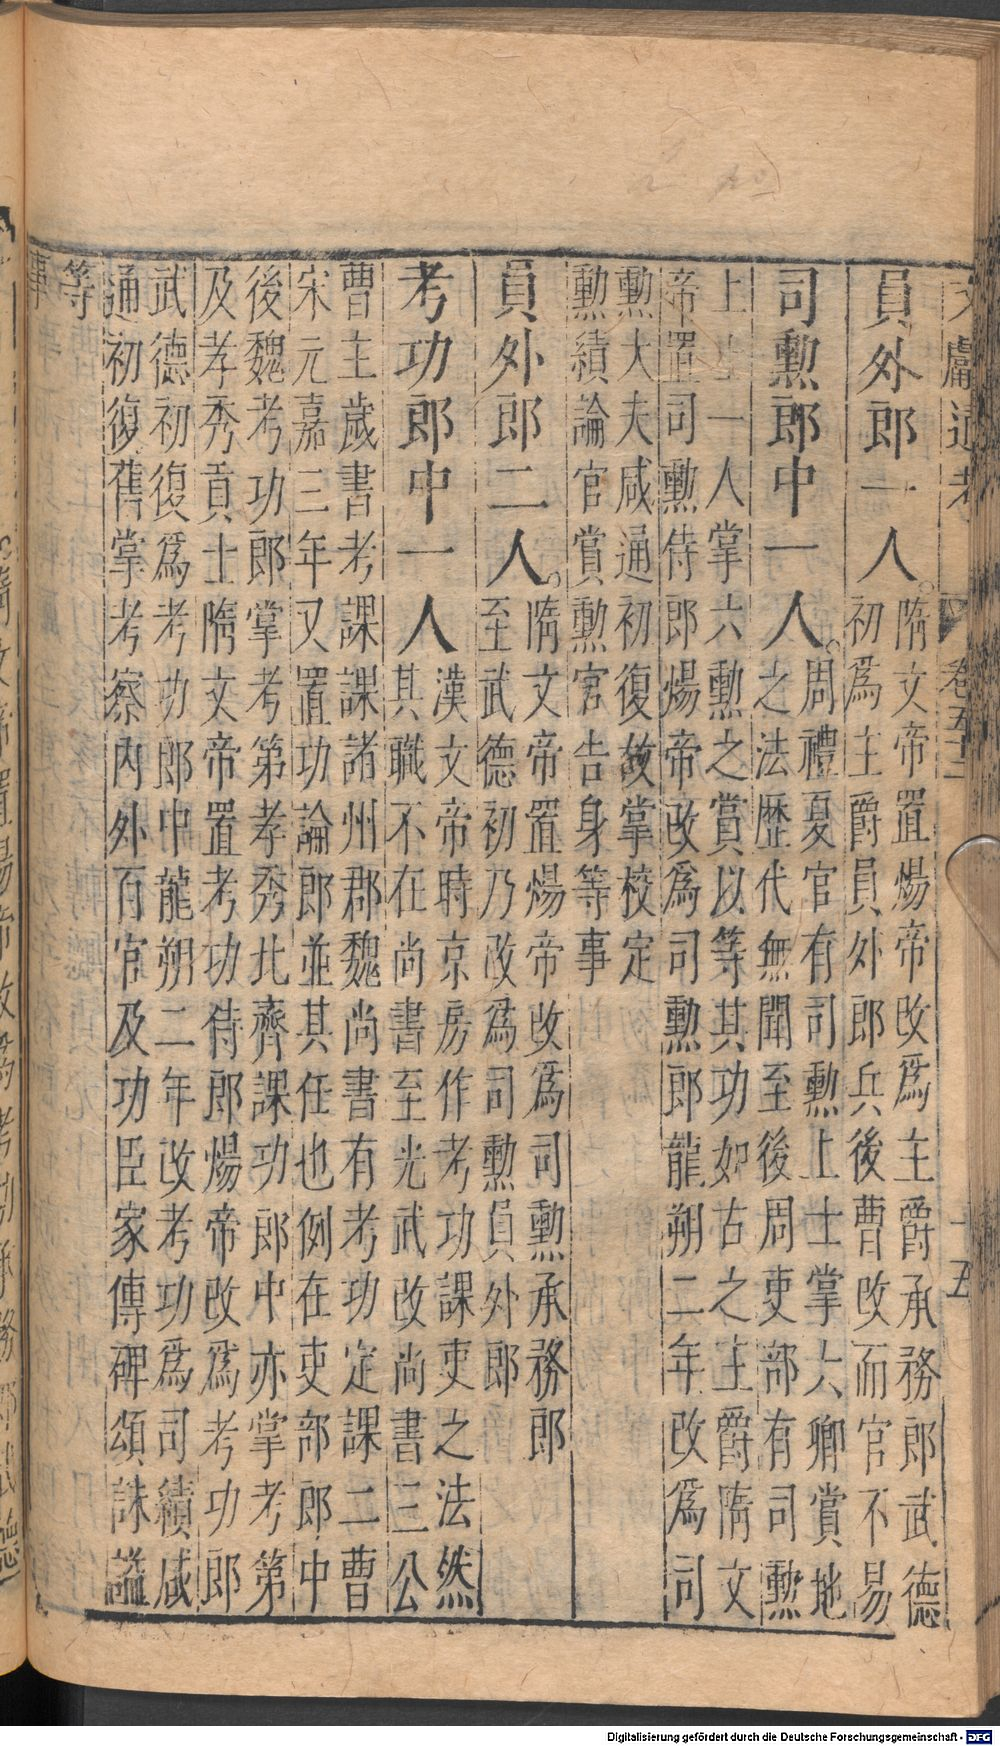 文獻通考 卷五十二 十五
員外郎一人。隋文帝置煬帝改爲主爵承務郎武德
初爲主爵員外郎兵後曹改而官不易
司勲郎中一人。周禮夏官有司勲上士掌六卿賞地
之法歴代無聞至後周吏部有司勲
上士一人掌六勲之賞以等其功如古之主爵隋文
帝置司勲侍郎煬帝改爲司勲郎龍朔二年改爲司
勲大夫咸通初復故掌校定
勲績論官賞勲官告身等事
員外郎二人。隋文帝置煬帝改爲司勲承務郎
至武德初乃改爲司勲員外郎
考功郎中一人漢文帝時京房作考功課吏之法然
其職不在尚書至光武改尚書三公
曹主歲書考課課諸州郡魏尚書有考功定課二曹
宋元嘉三年又置功論郎並其任也例在吏部郎中
後魏考功郎掌考第孝秀北齊課功郎中亦掌考第
及孝秀貢士隋文帝置考功侍郎煬帝改爲考功郎
武德初復爲考功郎中龍朔二年改考功爲司績咸
通初復舊掌考察內外百官及功臣家傳碑頌誄謚
等
事
Digitalisierung gefördert durch die Deutsche Forschungsgemeinschaft - DFG